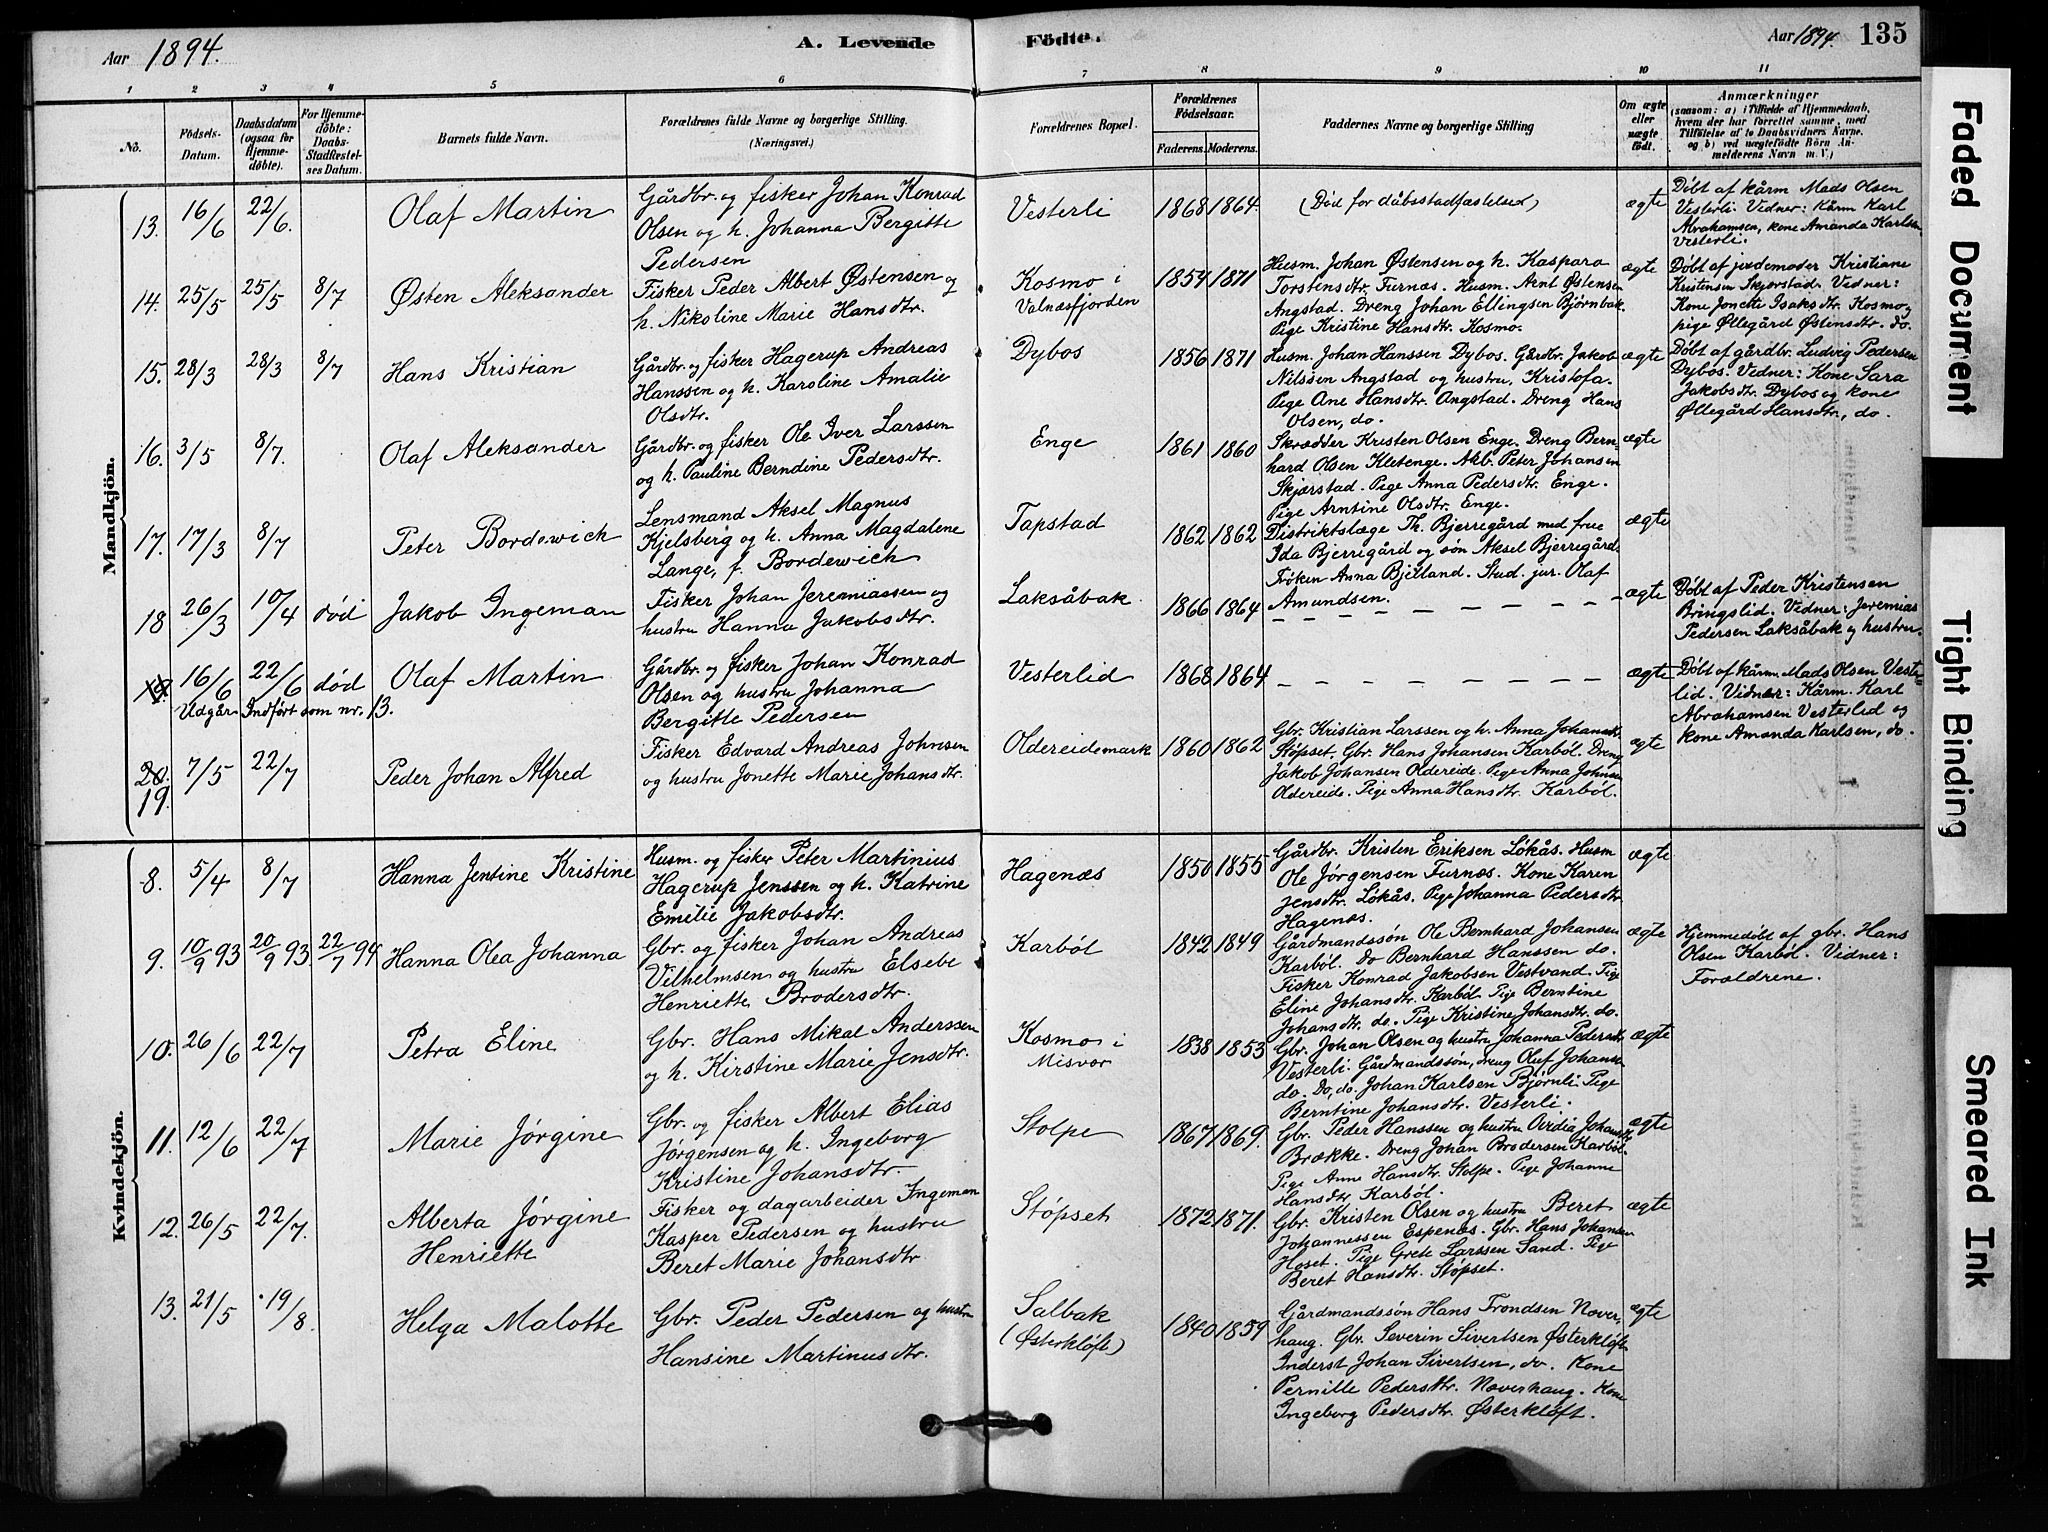 Aar 1894.
A. Levende Födte.
Aar 1894. 135
1 2 3 4 5 6 7 8 9 10 11
No.
Födsels-
Datum.
Daabsdatum
(ogsaa for
Hjemme-
döbte).
For Hjemme-
döbte:
Daabs-
Stadfæstel-
ses Datum.
Barnets fulde Navn.
Forældrenes fulde Navne og borgerlige Stilling.
(Næringsvei.)
Forældrenes Bopæl.
Forældrenes
Födselsaar.
Faderens. Moderens.
Faddernes Navne og borgerlige Stilling
Om ægte
eller
uægte
født.
Anmærkninger
(saasom: a) i Tilfælde af Hjemmedaab,
hvem der har forrettet samme, med
Tilföielse af to Daabsvidners Navne.
og b) ved uægtefödte Börn An-
melderens Navn m. V.)
Mandkjön.
13. 16/6 22/6. Olaf Martin
Gårdbr. og fisker Johan Konrad
Olsen og h. Johanna Bergitte
Pedersen
Vesterli 1868 1864. (Død for dåbsstadfæstelsed) ægte
Døbt af kårm Mads Olsen
Vesterli. Vidner: Kårm Karl
Abrahamsen, kone Amanda Karlsen
Vesterli.
14. 25/5 25/5 8/7 Østen Aleksander
Fisker Peder Albert Østensen og
h. Nikoline Marie Hansdtr.
Kosmo i
Valnæsfjorden
1854 1871
Husm. Johan Østensen og h. Kaspara
Torstensdtr. Furnæs. Husm. Arnt Østensen
Angstad. Dreng Johan Ellingsen Bjørnbak.
Pige Kristine Hansdtr. Kosmo.
ægte
Døbt af jordemoder Kristiane
Kristensen Skjørstad. Vidner:
Kone Jonette Isaksdtr. Kosmo,
pige Øllegård Østensdtr. do.
15. 28/3 28/3 8/7 Hans Kristian
Gårdbr. og fisker Hagerup Andreas
Hanssen og h. Karoline Amalie
Olsdtr.
Dybos 1856 1871
Husm. Johan Hanssen Dybos. Gårdbr. Jakob
Nilssen Angstad og hustru, Kristofa.
Pige Ane Hansdtr. Angstad. Dreng Hans
Olsen, do.
ægte
Døbt af gårdbr. Ludvig Pedersen
Dybos. Vidner: Kone Sara
Jakobsdtr. Dybos og kone
Øllegård Hansdtr, do.
16. 3/5 8/7. Olaf Aleksander
Gårdbr. og fisker Ole Iver Larssen
og h. Pauline Berndine Pedersdtr.
Enge 1861 1860
Skrædder Kristen Olsen Enge. Dreng Bern-
hard Olsen Kletenge. Arb. Peter Johansen
Skjærstad. Pige Anna Pedersdtr. Enge.
Pige Arntine Olsdtr. Enge.
ægte
17. 17/3 8/7 Peter Bordewich
Lensmand Aksel Magnus
Kjelsberg og h. Anna Magdalene
Lange, f. Bordewich
Tapstad 1862 1862
Distriktslæge Th. Bjerregård med frue
Ida Bjerregård og søn Aksel Bjerregård.
Frøken Anna Bjelland. Stud. jur. Olaf
Amundsen.
ægte
18 26/3 10/4 død Jakob Ingeman
Fisker Johan Jeremiassen og
hustru Hanna Jakobsdtr.
Laksåbak 1866 1864 ægte
Døbt af Peder Kristensen
Bringslid. Vidner: Jeremias
Pedersen Laksåbak og hustru.
19. 16/6 22/6 død Olaf Martin
Udgår. Indført som nr. 13.
Gårdbr. og fisker Johan Konrad
Olsen og hustru Johanna
Bergitte Pedersen
Vesterlid 1868 1864 ægte
Døbt af kårm. Mads Olsen Vester-
lid. Vidner: Kårm. Karl
Abrahamsen Vesterlid og
kone Amanda Karlsen, do.
20.
19. 7/5 22/7 Peder Johan Alfred
Fisker Edvard Andreas Johnsen
og hustru Jonette Marie Johansdtr.
Oldereidemark 1860 1862
Gbr. Kristian Larssen og h. Anna Johansdtr
Støpset. Gbr. Hans Johansen Karbøl. Dreng
Jakob Johansen Oldereide. Pige Anna Johnsen
Oldereide. Pige Anna Hansdtr. Karbøl.
ægte
Kvindekjön.
8. 5/4 8/7 Hanna Jentine Kristine
Husm. og fisker Peter Martinius
Hagerup Jenssen og h. Katrine
Emilie Jakobsdtr.
Hagenæs 1850 1855
Gårdbr. Kristen Eriksen Løkås. Husm
Ole Jørgensen Furnæs. Kone Karen
Jensdtr. Løkås. Pige Johanna Pedersdtr.
Hagenæs.
ægte
9. 10/9 93 20/9 93. 22/7 94 Hanna Olea Johanna
Gbr. og fisker Johan Andreas
Vilhelmsen og hustru Elsebe
Henriette Brodersdtr.
Karbøl 1842 1849
Gårdmandssøn Ole Bernhard Johansen
Karbøl. Do Bernhard Hanssen do.
Fisker Konrad Jakobsen Vestvand. Pige
Eline Johansdtr. Karbøl. Pige Berntine
Johansdtr. do. Pige Kristine Johansdtr. do.
ægte
Hjemmedøbt af gbr. Hans
Olsen Karbøl. Vidner:
Forældrene.
10. 26/6 22/7 Petra Eline
Gbr. Hans Mikal Anderssen
og h. Kirstine Marie Jensdtr.
Kosmo i
Misvær
1838 1853
Gbr. Johan Olsen og hustru Johanna Pedersdtr
Vesterli. Gårdmandssøn, dreng Oluf Johansen
do. Do, do. Johan Karlsen Bjørnli. Pige
Berntine Johansdtr. Vesterli.
ægte
11. 12/6 22/7 Marie Jørgine
Gbr. og fisker Albert Elias
Jørgensen og h. Ingeborg
Kristine Johansdtr.
Stolpe 1867 1869.
Gbr. Peder Hanssen og hustru Ovidia Johansdtr
Brække. Dreng Johan Brodersen Karbøl.
Pige Anne Hansdtr. Stolpe. Pige Johanne
Hansdtr. Karbøl.
ægte
12. 26/5 22/7. Alberta Jørgine
Henriette
Fisker og dagarbeider Ingeman
Kasper Pedersen og hustru
Beret Marie Johansdtr.
Støpset 1872 1871.
Gbr. Kristen Olsen og hustru Beret
Johannessen Espenes. Gbr. Hans Johansen
Hoset. Pige Grete Larssen Sand. Pige
Beret Hansdtr. Støpset.
ægte
13. 21/5 19/8 Helga Malotte
Gbr. Peder Pedersen og hustru
Hansine Martinusdtr.
Salbak
(Østerkløft)
1840 1859
Gårdmandssøn Hans Trondsen Næver-
haug. Gbr. Severin Sivertsen Østerkløft
Inderst Johan Sivertsen, do. Kone
Pernille Pedersdtr. Næverhaug. Kone
Ingeborg Pedersdtr. Østerkløft.
ægte
Faded Document
Tight Binding
Smeared Ink